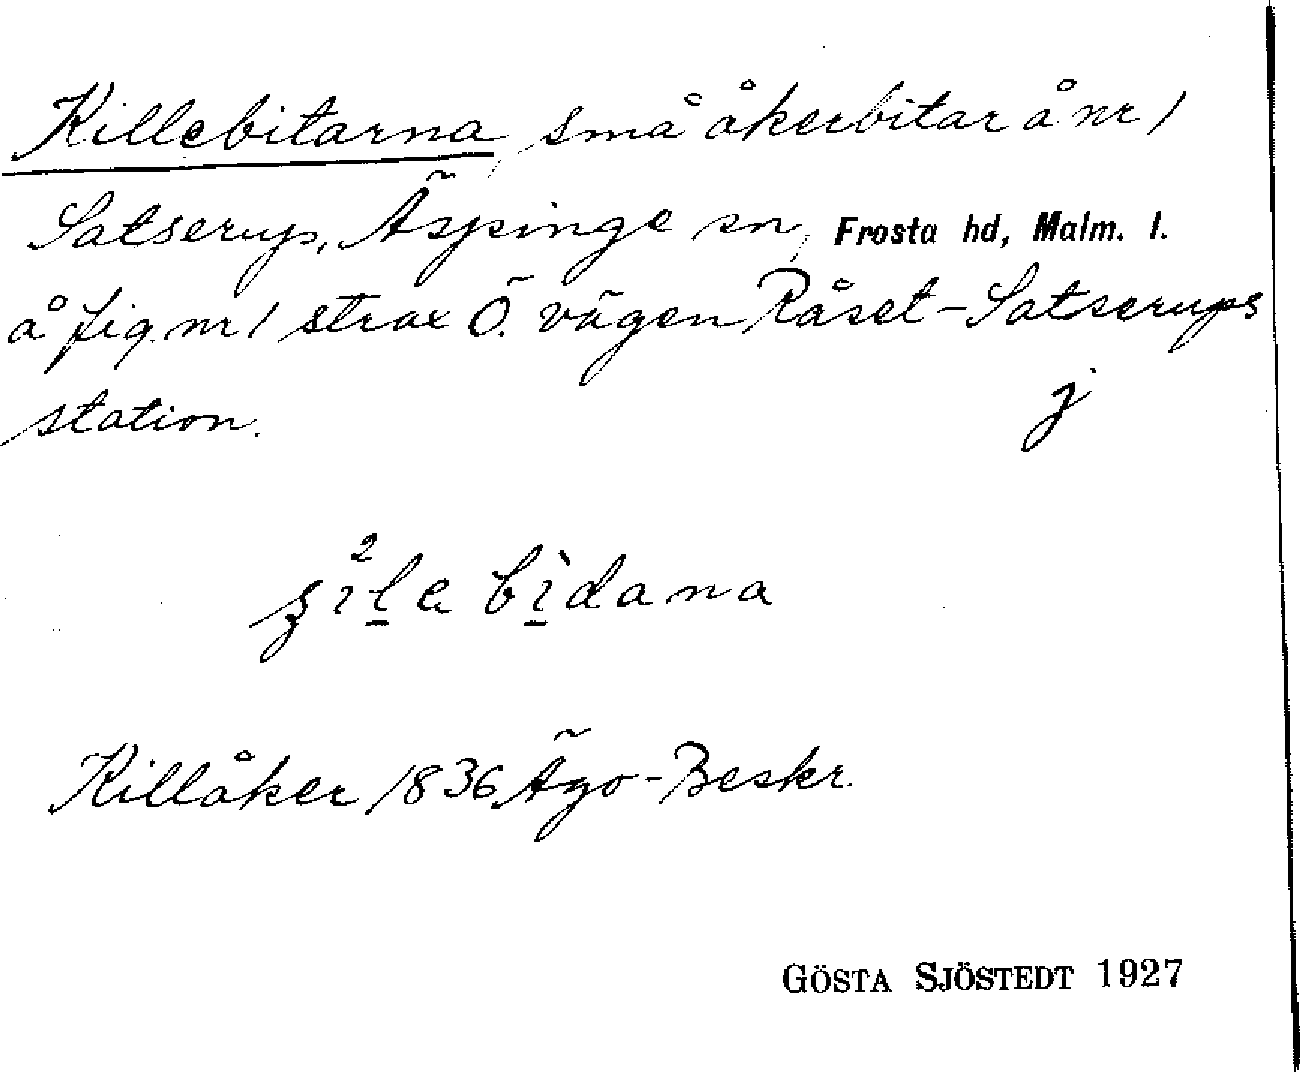 Killebitarna, små åkerbitar å nr 1
Satserup, Äspinge sn, Frosta hd, Malm. l.
å fig. nr 1 strax Ö. vägen Råset-Satserups
station. j
bìdana
Killåker 1836 Ägo-Beskr.
GÖSTA SJÖSTEDT 1927